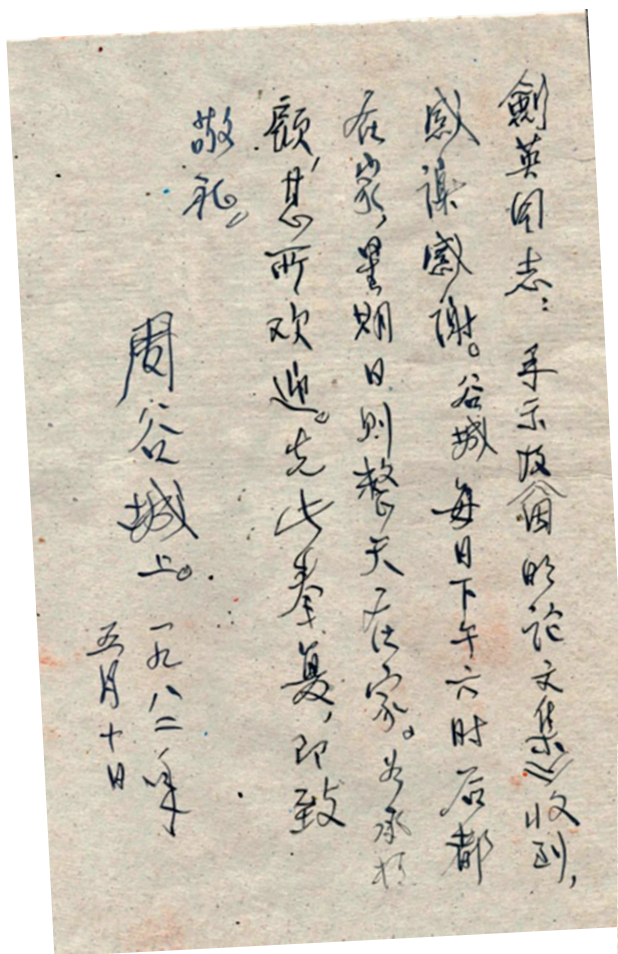 劍英同志：手示及《因明论文集》收到，
感谢感谢。谷城每日下午六时后都
在家，星期日则整天在家。若承枉
顾，甚所欢迎。先此奉复，即致
敬礼。
周谷城上。一九八二年
五月十日